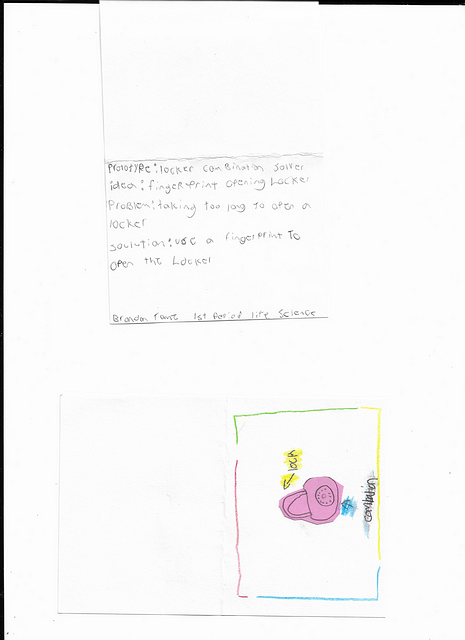 Prototype: locker combination solver
idea: fingerprint opening Locker
Problem: taking too long to open a
locker
soulution: use a fingerprint To
open the Locker
Brandon 1st Period life Science
lock